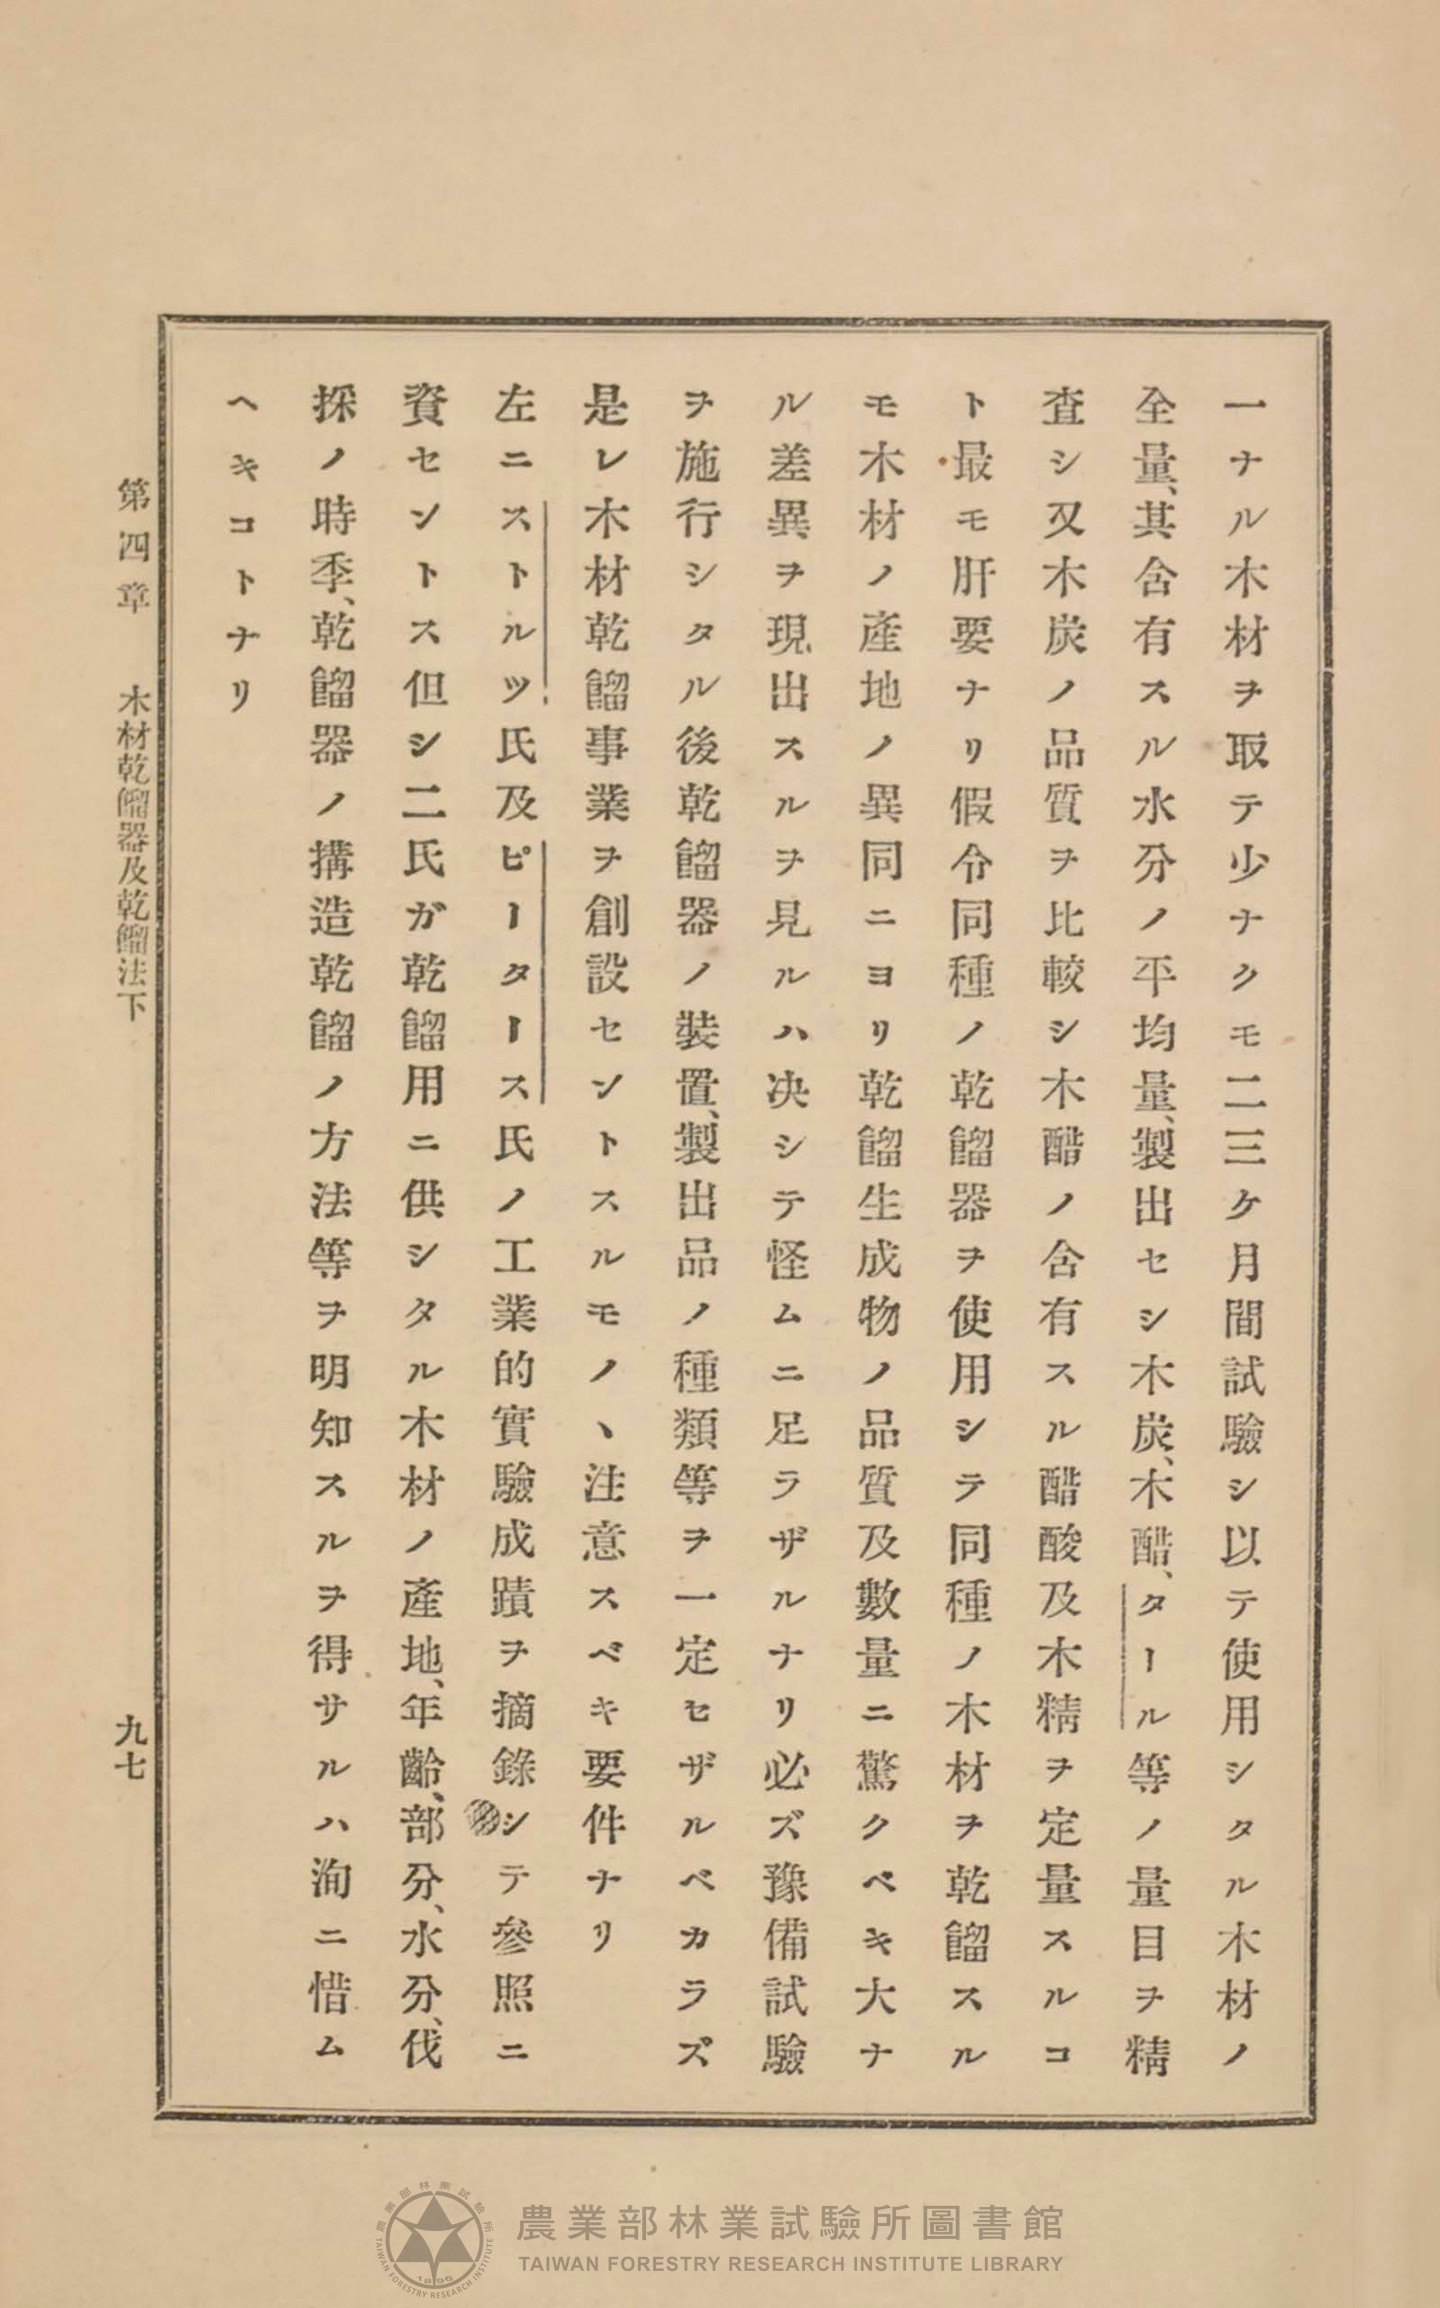 一ナル木材ヲ取テ少ナクモ二三ケ月間試驗シ以テ使用シタル木材ノ
全量、其含有スル水分ノ平均量、製出セシ木炭、木醋、タール等ノ量目ヲ精
査シ又木炭ノ品質ヲ比較シ木醋ノ含有スル醋酸及木精ヲ定量スルコ
ト最モ肝要ナリ假令同種ノ乾餾器ヲ使用シテ同種ノ木材ヲ乾餾スル
モ木材ノ產地ノ異同ニヨリ乾餾生成物ノ品質及數量ニ驚クベキ大ナ
ル差異ヲ現出スルヲ見ルハ决シテ怪ムニ足ラザルナリ必ズ豫備試驗
ヲ施行シタル後乾餾器ノ裝置、製出品ノ種類等ヲ一定セザルベカラズ
是レ木材乾餾事業ヲ創設セントスルモノヽ注意スベキ要件ナリ
左ニストルツ氏及ピータース氏ノ工業的實驗成蹟ヲ摘錄シテ參照ニ
資セントス但シ二氏ガ乾餾用ニ供シタル木材ノ產地、年齡、部分、水分、伐
採ノ時季、乾餾器ノ搆造乾餾ノ方法等ヲ明知スルヲ得サルハ洵ニ惜ム
ヘキコトナリ
第四章 木材乾餾器及乾餾法下
九七
農業部林業試驗所圖書館
TAIWAN FORESTRY RESEARCH INSTITUTE LIBRARY
農業部林業試驗所
TAIWAN FORESTRY RESEARCH INSTITUTE
1896